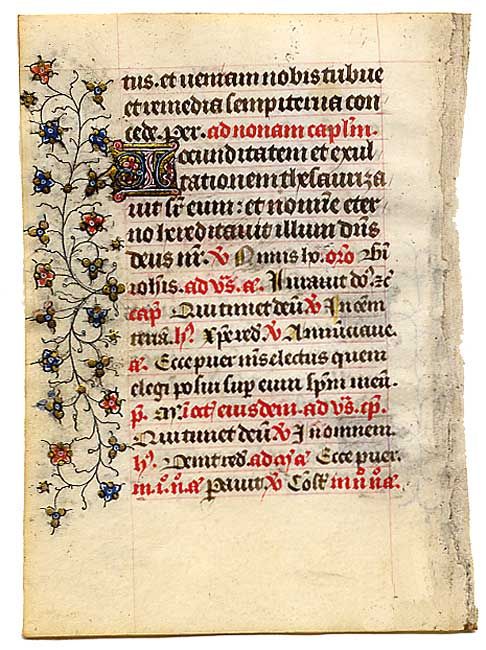 tus. et ueniam nobis tribue
et remedia sempiterna con
cede. Per. ad nonam caplm.
Iocunditatem et exul
tationem thesauriza
uit sr eum: et nomine eter
no hereditauit illum dns
deus nr. V oro
nobis. ad vs. ae. Iurauit do. zc
cap Qui timet deu V In em
terra. h. xpe red V Annunciaue.
ae. Ecce puer ms electus quem
elegi posui super eum spm meu.
p. eiusdem. ad vs. cp.
Qui timet deu V In omnem.
h. red. ad Ecce puer.
pauit V